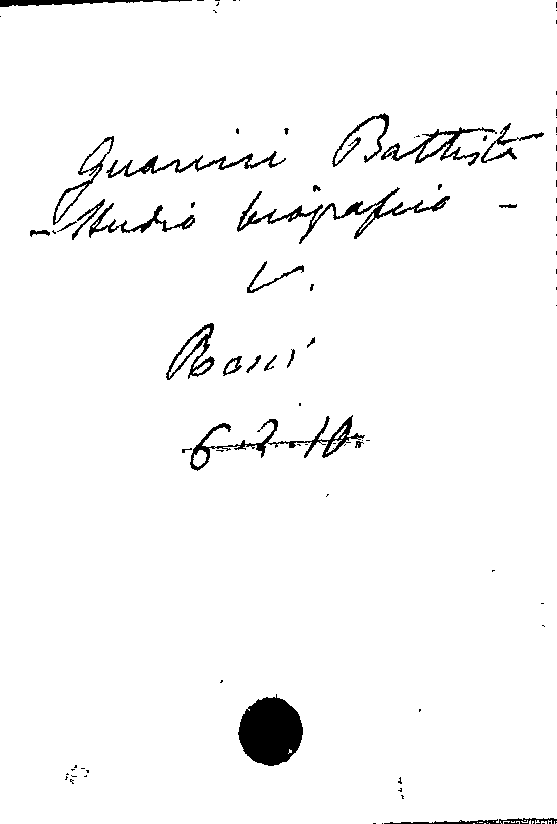 Guarini Battista
- Studio biografico -
V.
Rossi
6.2.10.